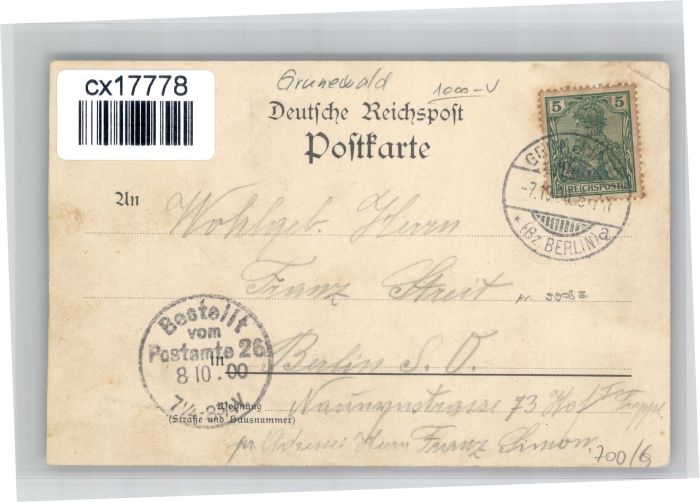 cx17778
Grunewald
1000-V
Deutsche Reichspost
Postkarte
5 5
REICHSPOST
(BZ. BERLIN) a
An Wohlgeb. Herrn
Franz Streit
Bestellt
vom
Postamte 26
8 10. 00
in Berlin S. O.
Wohnung
(Straße und Hausnummer)
Naunynstrasse 73 Hof I Treppe
pr. Adresse: Herrn Franz Simon.
700/6